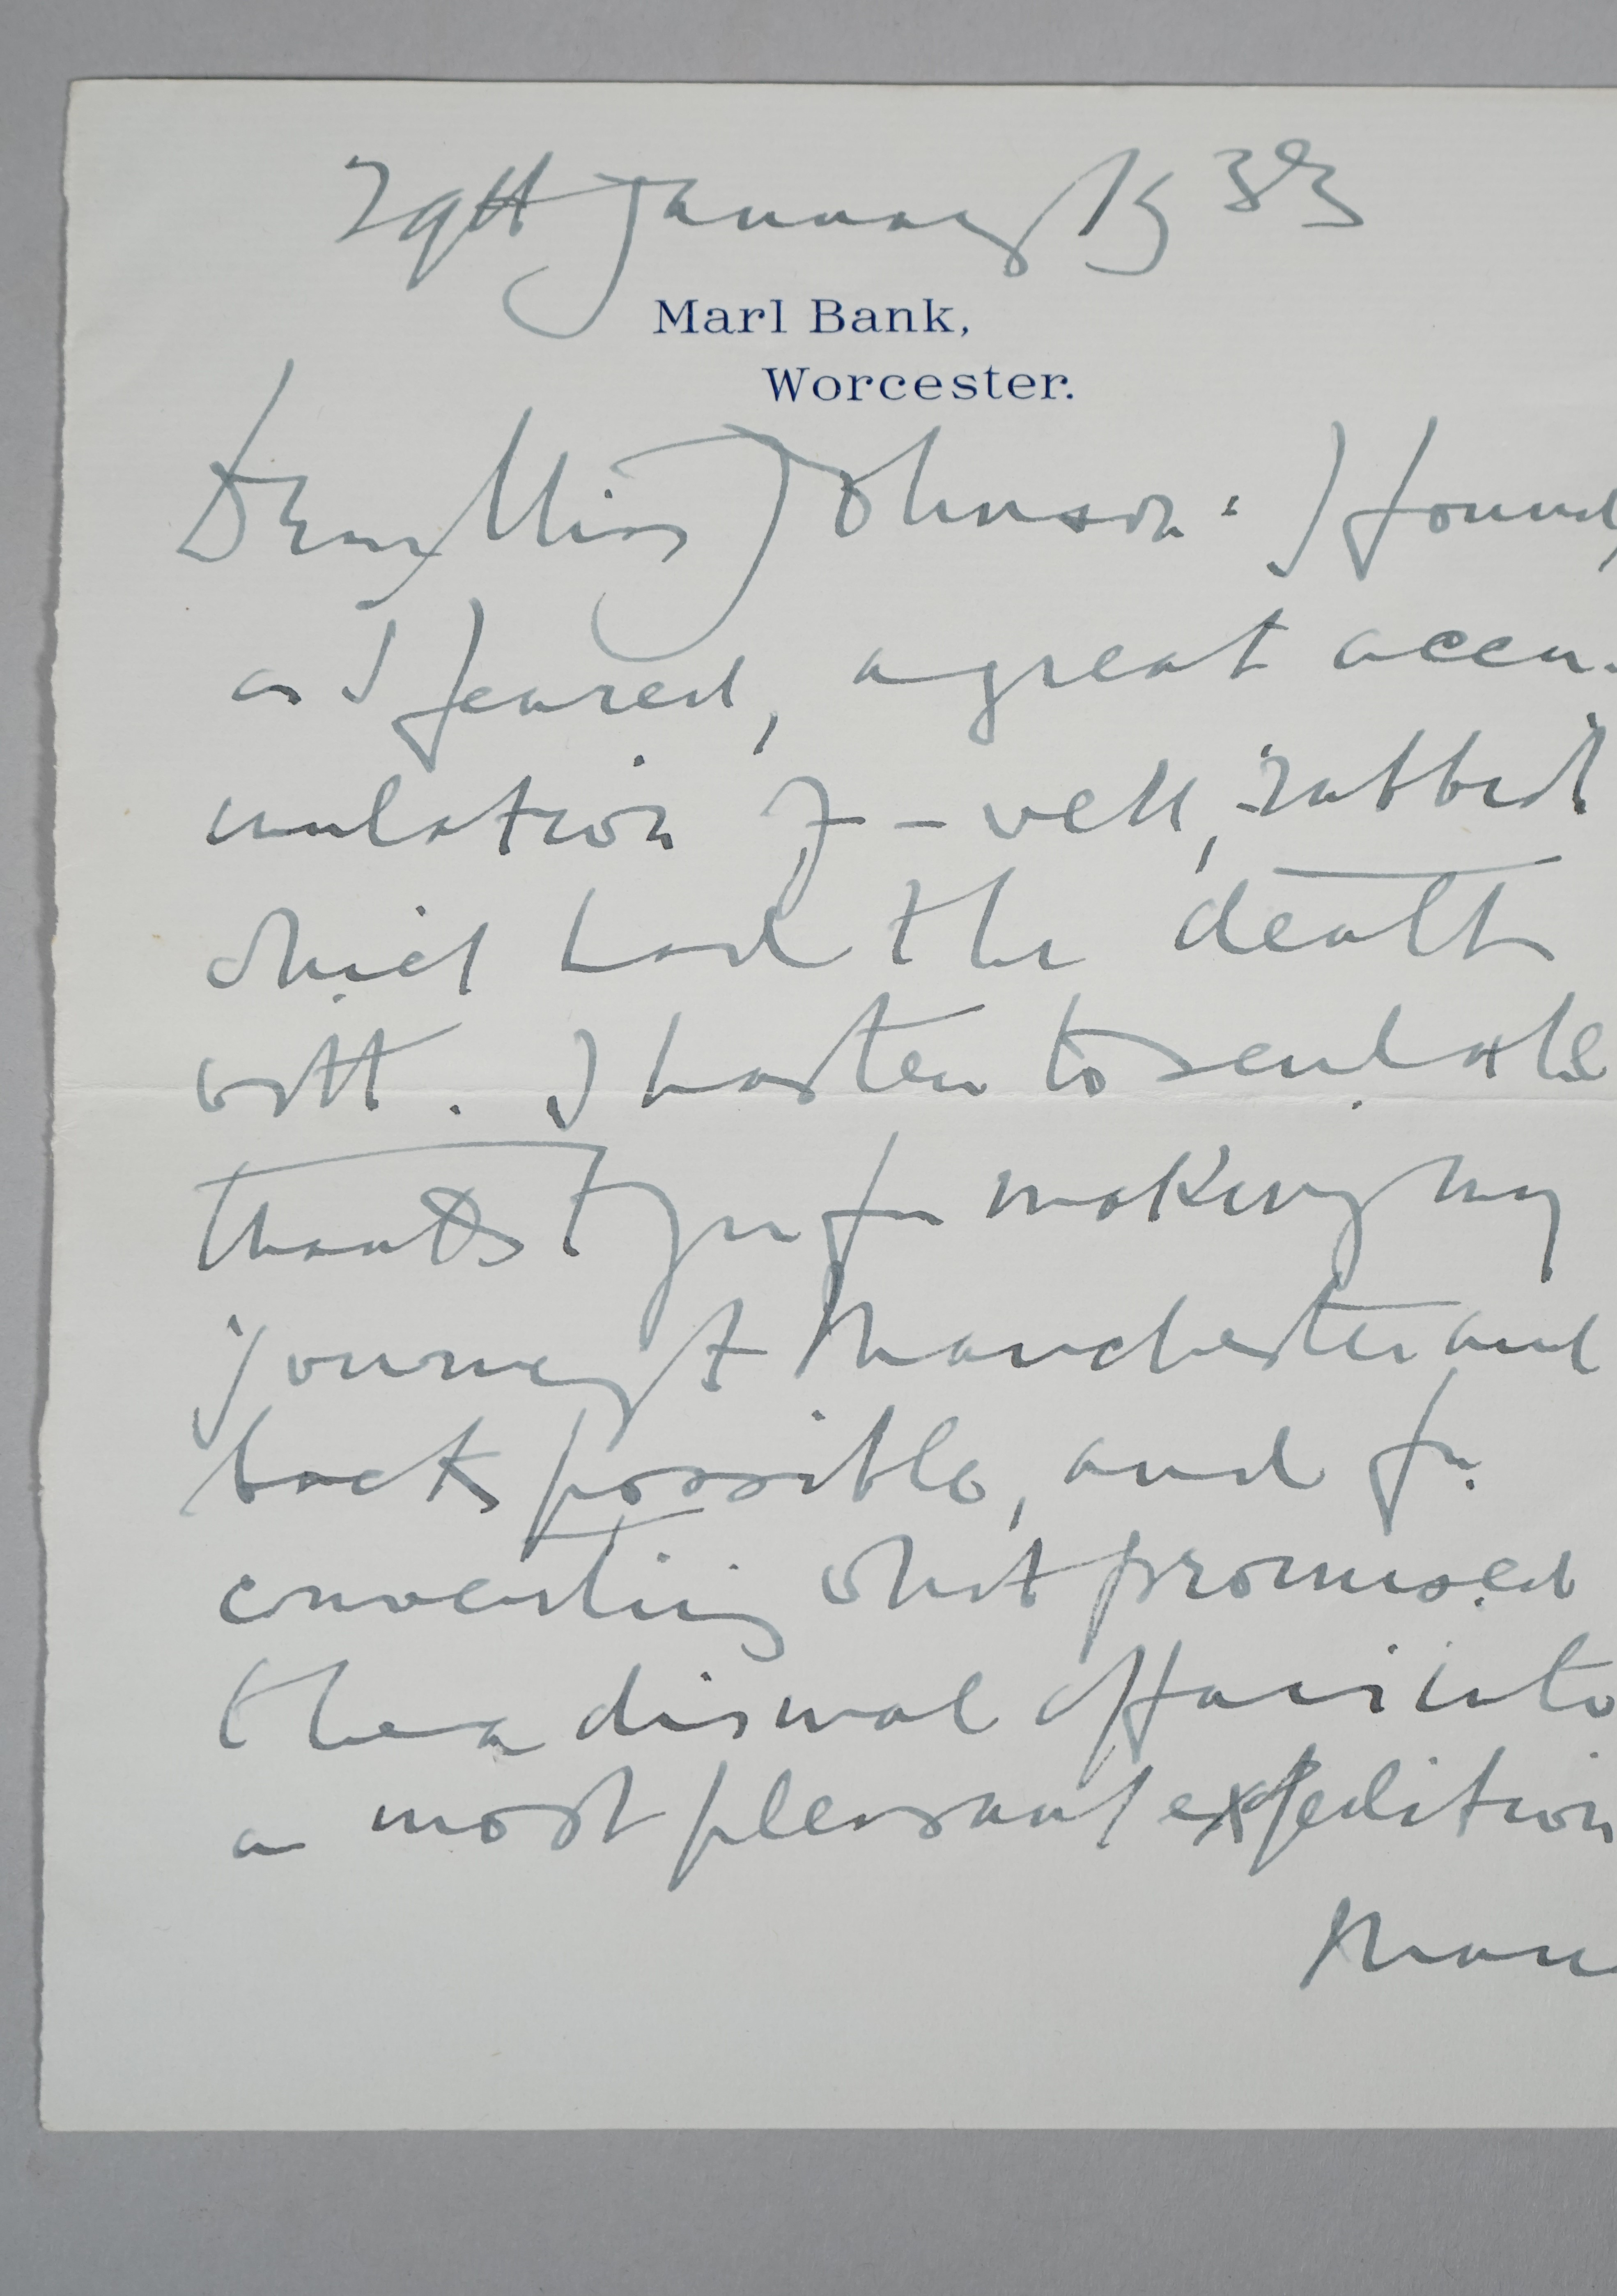 29th January 1933
Marl Bank,
Worcester.
Dear Miss Johnson: I found,
as I feared, a great accu-
mulation of – well, rubbish
which had to be dealt
with. I hasten to send
thanks to you for making my
journey to Manchester and
back possible, and for
converting what promised
to be a dismal affair into
a most pleasant expedition
Many